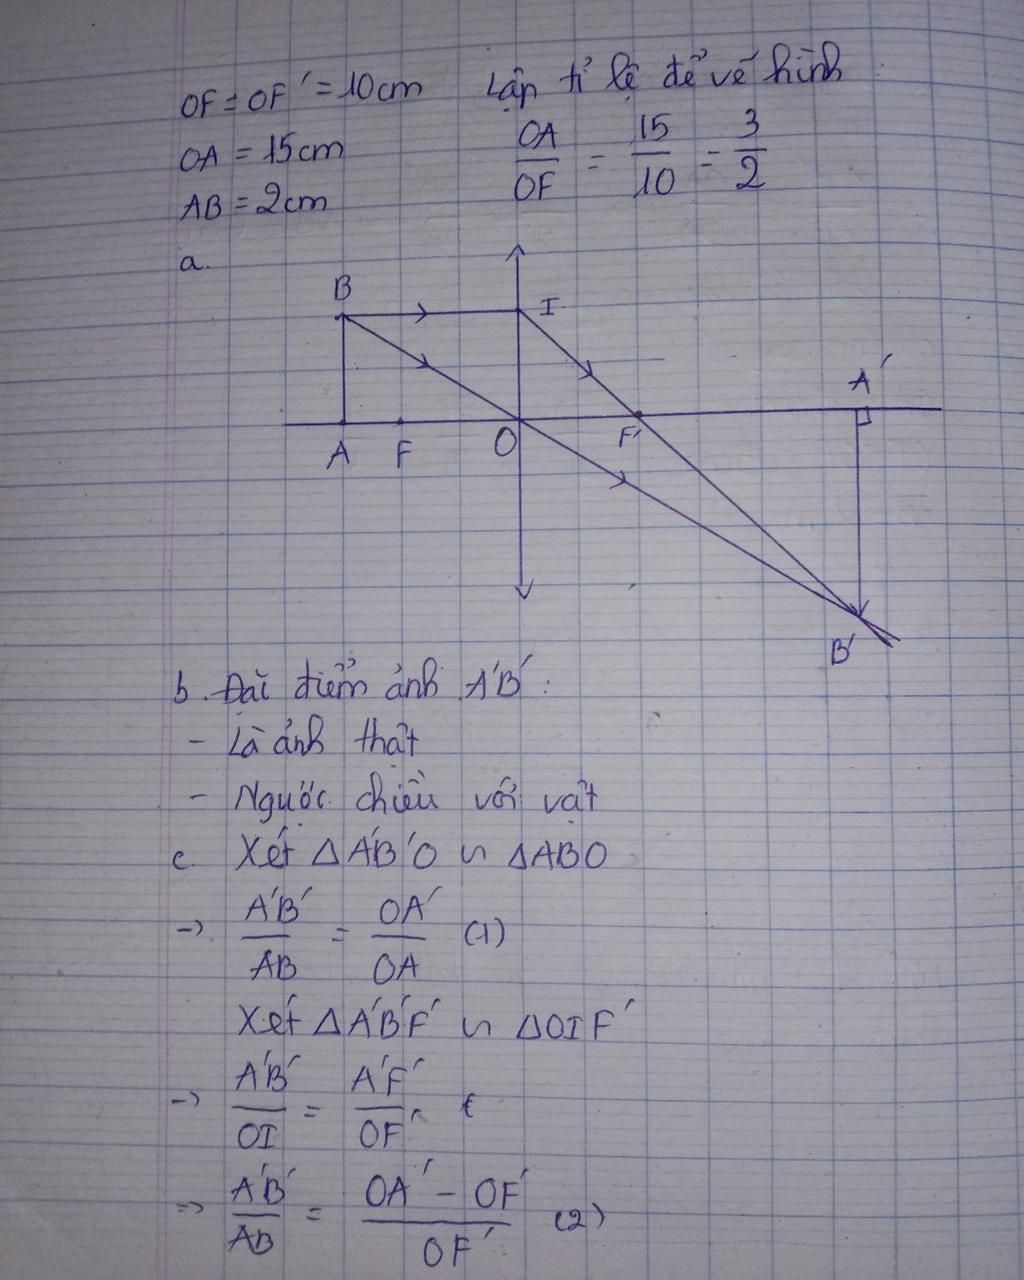 OF = OF' = 10cm Lập tỉ lệ để vẽ hình
OA = 15cm OA/OF = 15/10 = 3/2
AB = 2cm
a.
B I
A'
A F O F'
B'
b. Đặc điểm ảnh A'B':
- Là ảnh thật
- Ngược chiều với vật
c. Xét ΔA'B'O ∽ ΔABO
-> A'B'/AB = OA'/OA (1)
Xét ΔA'B'F' ∽ ΔOIF'
-> A'B'/OI = A'F'/OF'
=> A'B'/AB = OA' - OF'/OF' (2)